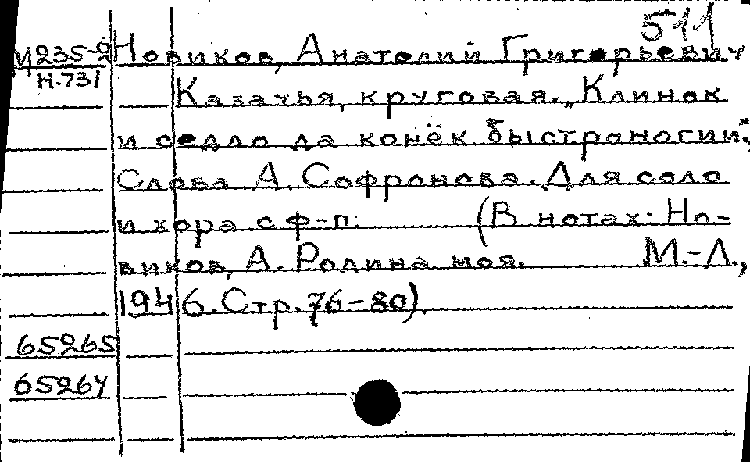 511
М235-2 Новиков, Анатолий Григорьевич
Н-731
Казачья, круговая. „Клинок
и седло да конёк быстроногий".
Слова А. Софронова. Для соло
и хора с ф-п. (В нотах: Но-
виков, А. Родина моя. М.-Л.,
1946. Стр. 76-80).
65265
65264